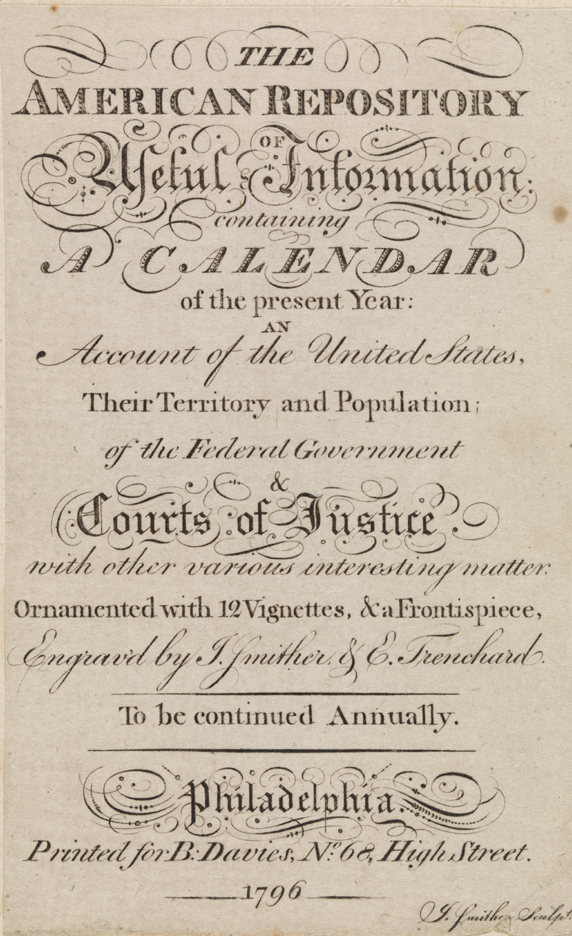 THE
AMERICAN REPOSITORY
OF
Useful Information:
containing
A CALENDAR
of the present Year:
AN
Account of the United States,
Their Territory and Population;
of the Federal Government
&
Courts of Justice.
with other various interesting matter.
Ornamented with 12 Vignettes, & a Frontispiece,
Engrav'd by J. Smither & E. Trenchard.
To be continued Annually.
Philadelphia.
Printed for B. Davies, No. 68, High Street.
1796
J. Smither Sculpt.